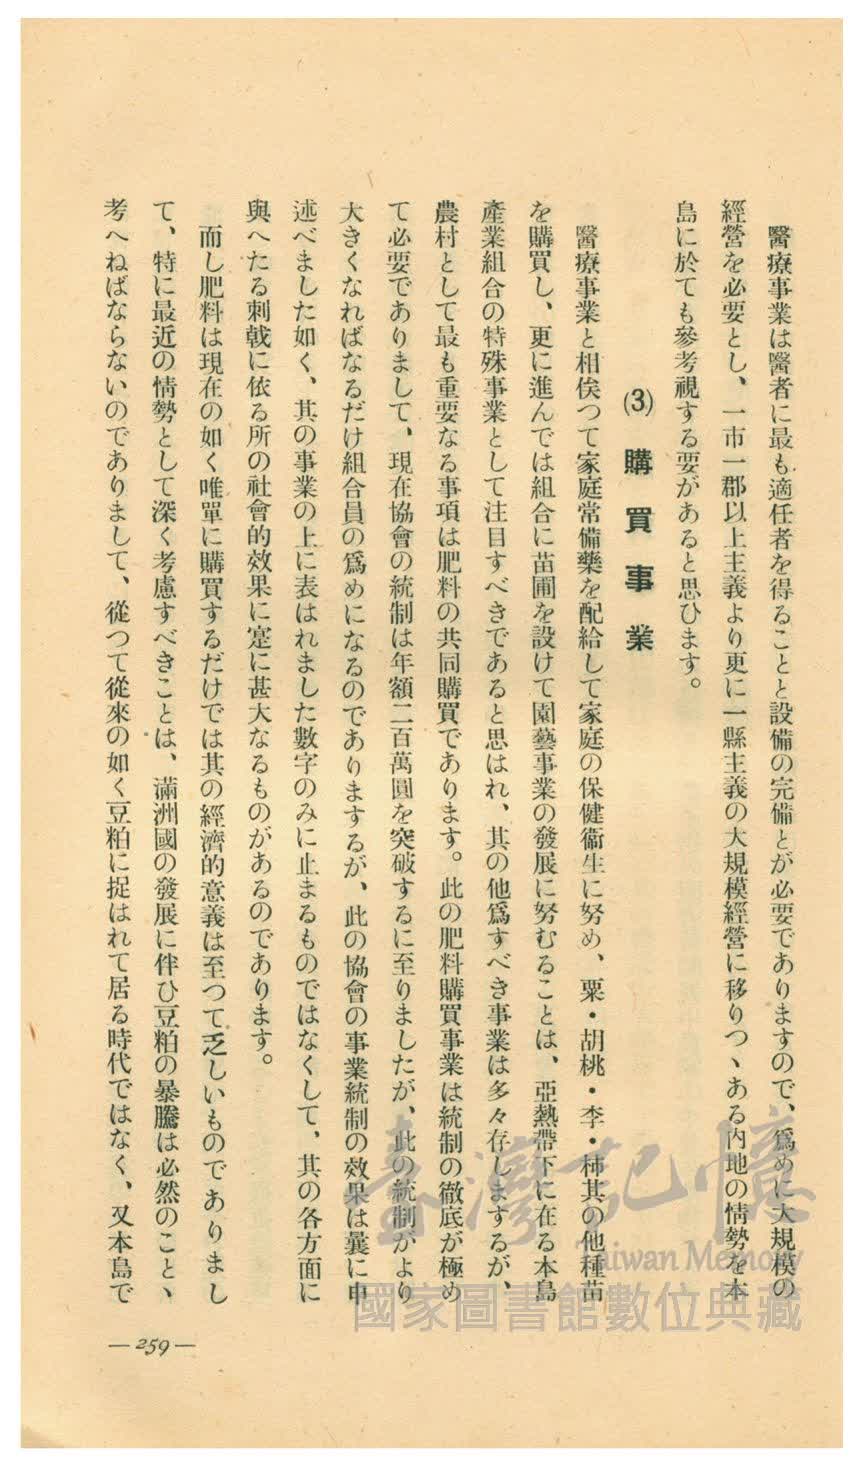 醫療事業は醫者に最も適任者を得ることと設備の完備とが必要でありますので、爲めに大規模の
經營を必要とし、一市一郡以上主義より更に一縣主義の大規模經營に移りつゝある內地の情勢を本
島に於ても參考視する要があると思ひます。
(3) 購買事業
醫療事業と相俟つて家庭常備藥を配給して家庭の保健衞生に努め、栗・胡桃・李・柿其の他種苗
を購買し、更に進んでは組合に苗圃を設けて園藝事業の發展に努むることは、亞熱帶下に在る本島
產業組合の特殊事業として注目すべきであると思はれ、其の他爲すべき事業は多々存しまするが、
農村として最も重要なる事項は肥料の共同購買であります。此の肥料購買事業は統制の徹底が極め
て必要でありまして、現在協會の統制は年額二百萬圓を突破するに至りましたが、此の統制がより
大きくなればなるだけ組合員の爲めになるのでありまするが、此の協會の事業統制の效果は曩に申
述べました如く、其の事業の上に表はれました數字のみに止まるものではなくして、其の各方面に
與へたる刺戟に依る所の社會的效果に寔に甚大なるものがあるのであります。
而し肥料は現在の如く唯單に購買するだけでは其の經濟的意義は至つて乏しいものでありまし
て、特に最近の情勢として深く考慮すべきことは、滿洲國の發展に伴ひ豆粕の暴騰は必然のこと、
考へねばならないのでありまして、從つて從來の如く豆粕に捉はれて居る時代ではなく、又本島で
—259—
臺灣記憶
Taiwan Memory
國家圖書館數位典藏